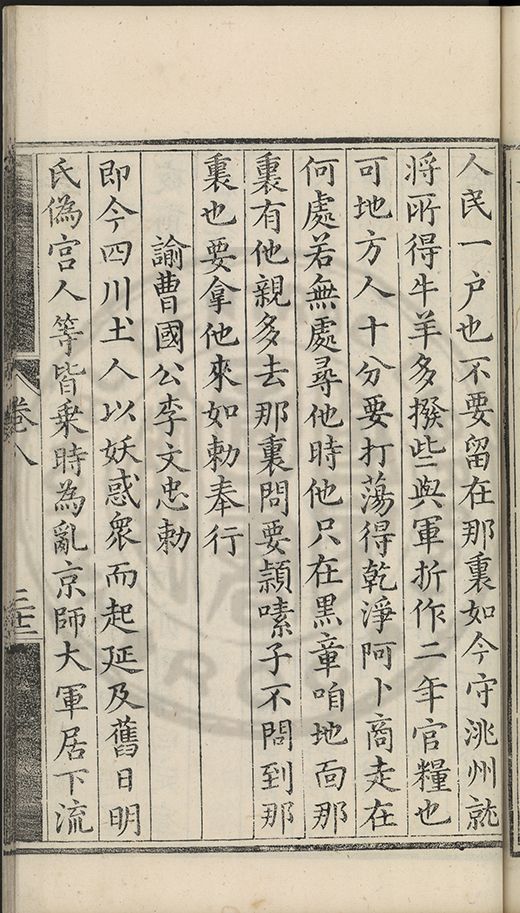 人民一户也不要留在那裏如今守洮州就
将所得牛羊多撥些與軍折作二年官糧也
可地方人十分要打蕩得乾淨阿卜商走在
何處若無處尋他時他只在黑章咱地面那
裏有他親多去那裏問要頴嗉子不問到那
裏也要拿他來如勅奉行
諭曹國公李文忠勅
即今四川土人以妖惑衆而起延及舊日明
氏偽宫人等皆乗時為亂京師大軍居下流
卷八